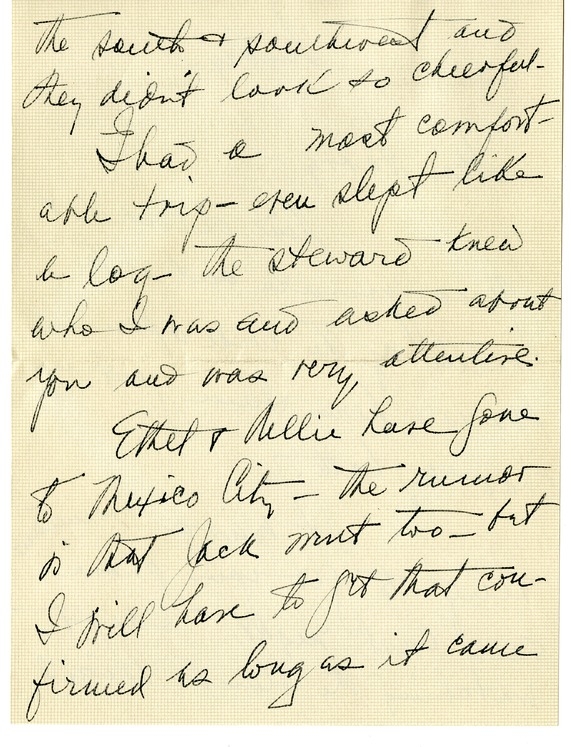 the south & southwest and
they didn't look so cheerful-
I had a most comfort-
able trip- even slept like
a log- the steward knew
who I was and asked about
you and was very attentive.
Ethel & Nellie have gone
to Mexico City - the rumor
is that Jack went too - but
I will have to get that con-
firmed as long as it came